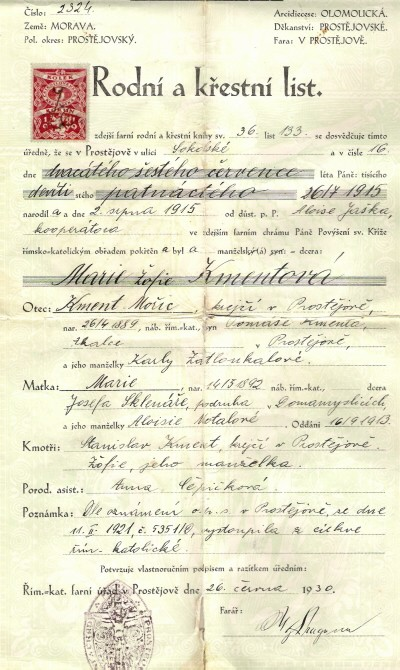 Číslo: 2324.
Země: MORAVA.
Pol. okres: PROSTĚJOVSKÝ.
Arcidiecese: OLOMOLICKÁ.
Děkanství: PROSTĚJOVSKÉ.
Fara: V PROSTĚJOVĚ.
Rodní a křestní list.
zdejší farní rodní a křestní knihy sv. 36. list 133. se dosvědčuje tímto
úředně, že se v Prostějově v ulici Sokolské a v čísle 16.
dne dvacátého šestého července léta Páně: tisícího
devíti stého patnáctého 26/7 1915
narodila a dne 2. srpna 1915 od důst. p. P. Aloise Jaška,
kooperátora ve zdejším farním chrámu Páně Povýšení sv. Kříže
římsko-katolickým obřadem pokřtěna byla manželský(á) syn - dcera:
Marie Žofie Kmentová
Otec: Kment Mořic, krejčí v Prostějově,
nar. 26/4 1889, náb. řím.-kat., syn Tomáše Kmenta,
v Prostějově,
a jeho manželky Karly Zatloukalové.
Matka: Marie, nar. 14/3 1892 náb. řím.-kat., dcera
Josefa Sklenáře, podruha v Domamyslicích,
a jeho manželky Aloisie Votalové. Oddáni 16/9 1913.
Kmotři: Stanislav Kment, krejčí v Prostějově.
Žofie, jeho manželka.
Porod. asist.: Anna
Poznámka: Dle oznámení v Prostějově, ze dne
11. II. 1921, č. vystoupila z církve
řím. katolické.
Potvrzuje vlastnoručním podpisem a razítkem úředním:
Řím.-kat. farní úřad v Prostějově dne 26. června 1930.
Farář: